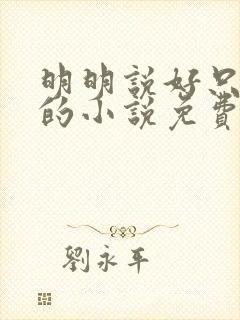 明明說好只
的小說免費
劉永平